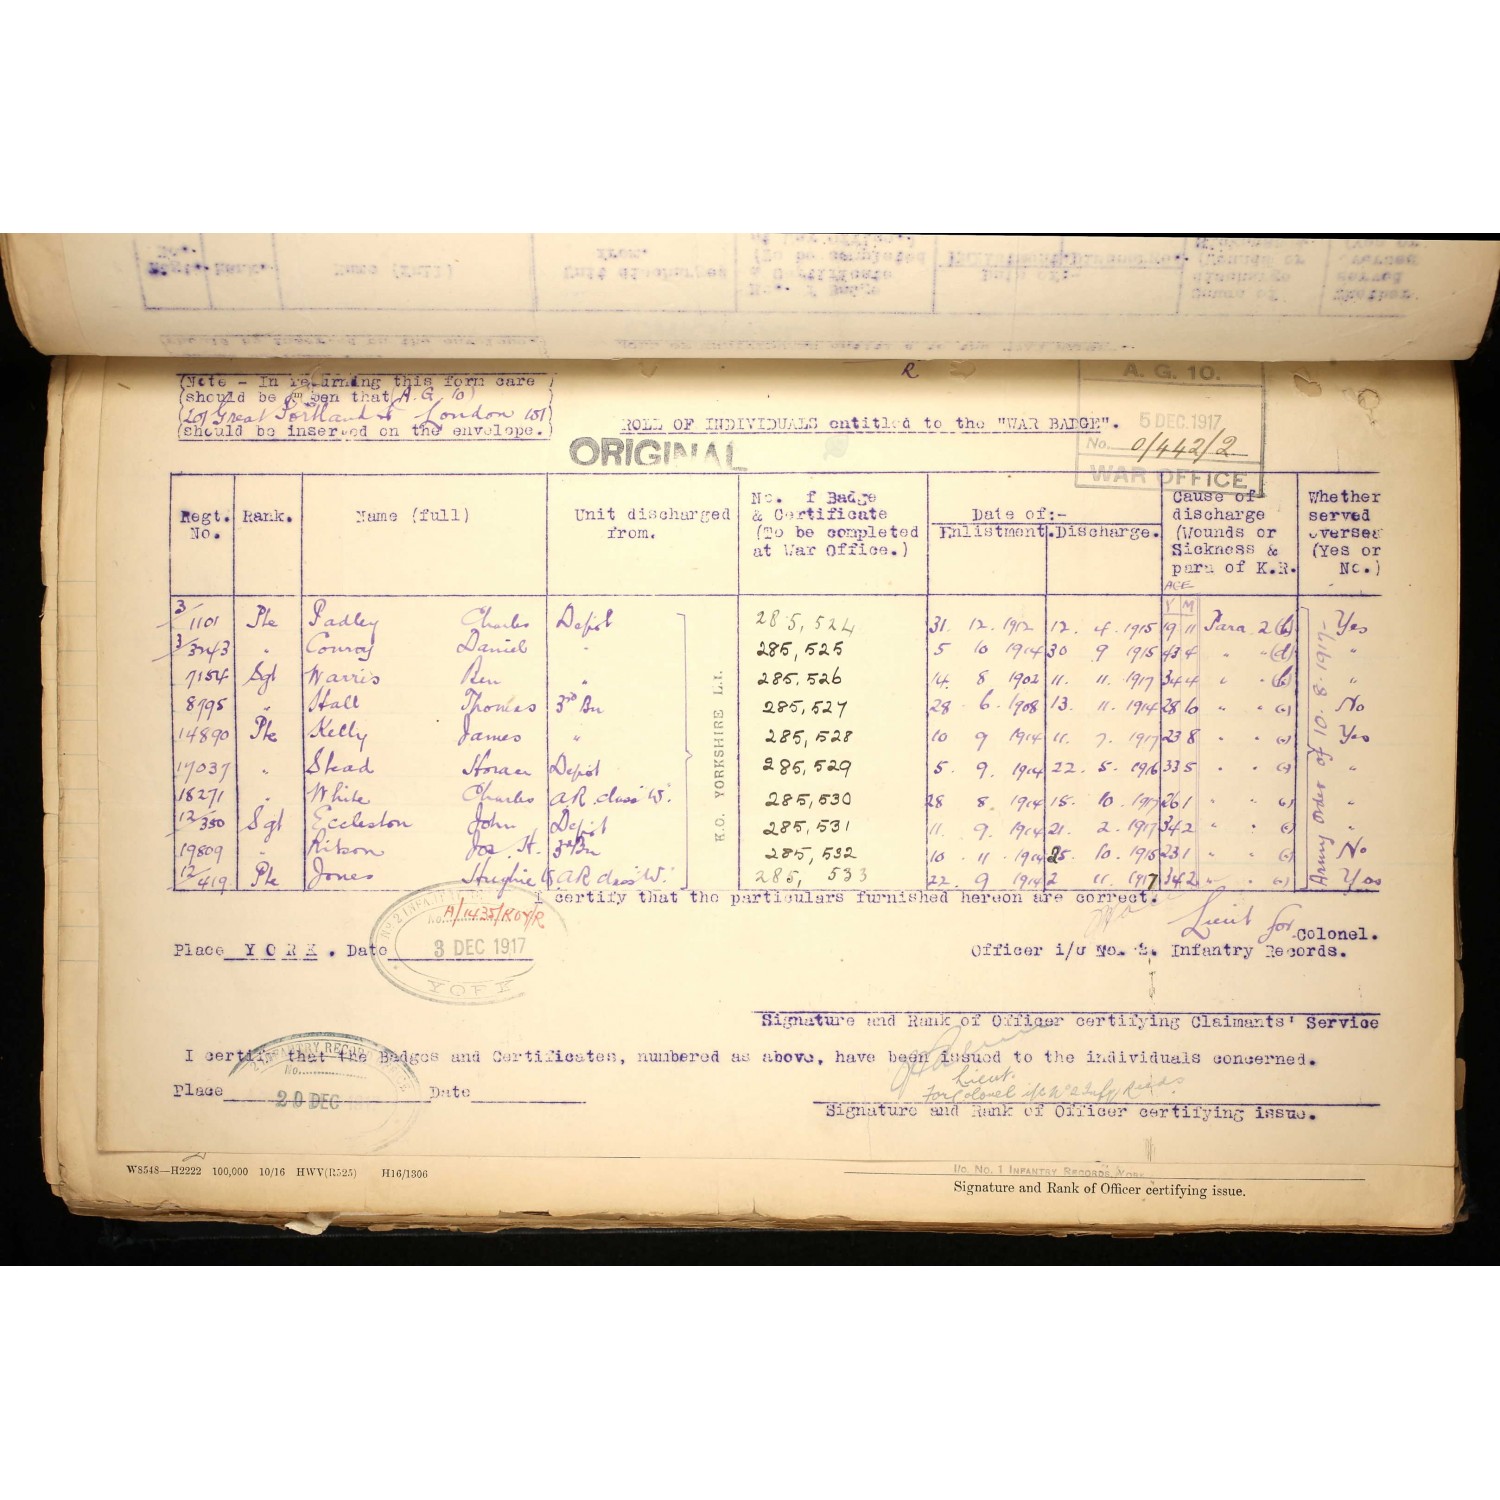 R
(Note - In returning this form care )
(should be taken that (A.G. 10)
(201 Great Portland St London W1)
(should be inserted on the envelope.)
ROLL OF INDIVIDUALS entitled to the "WAR BADGE".
ORIGINAL
A. G. 10.
5 DEC. 1917
No. 0/442/2
WAR OFFICE
Regt. No. Rank. Name (full) Unit discharged from. No. f Badge & Certificate (To be completed at War Office.) Date of:- Enlistment. Discharge. Cause of discharge (Wounds or Sickness & para of K.R. Whether served oversea (Yes or No.)
AGE
Y M
3/1101 Pte Padley Charles Depôt 285,524 31. 12. 1912 12. 4. 1915 19 11 Para 2 (b) Yes
3/3243 " Conroy Daniel " 285,525 5 10 1914 30 9 1915 43 4 " " (a) "
7154 Sgt Warris Ben " 285,526 14. 8 1902 11. 11. 1917 34 4 " " (b) "
8795 " Hall Thomas 3rd Bn 285,527 28 . 6. 1908 13. 11. 1914 28 6 " " No
14890 Pte Kelly James " 285,528 10 9 1914 11. 7. 1917 23 8 " " Yes
17037 " Stead Horace Depôt 285,529 5. 9. 1914 22. 5. 1916 33 5 " " "
18271 " White Charles A.R. class 'W'. 285,530 28 8. 1914 15. 10. 1917 26 1 " " "
12/350 Sgt Eccleston John Depôt 285,531 11. 9. 1914 21. 2. 1917 34 2 " " "
19809 " Kitson Jos. H. 3rd Bn 285,532 10 . 11 . 1914 25. 10. 1915 23 1 " " No
12/419 Pte Jones Hughie A.R class 'W'. 285, 533 22. 9 1914 2 11. 1917 34 2 " " Yes
K.O. YORKSHIRE L.I.
Army Order of 10. 8. 1917-
I certify that the particulars furnished hereon are correct.
A/1435/ROY/R
Lieut for Colonel.
Place YORK. Date 3 DEC 1917
Officer i/c No. 2. Infantry Records.
YORK
Signature and Rank of Officer certifying Claimants' Service
I certify that the Badges and Certificates, numbered as above, have been issued to the individuals concerned.
INFANTRY RECORD
No.
Lieut.
For Colonel i/c No 2 Infy Records.
Place 20 DEC Date
Signature and Rank of Officer certifying issue.
W8548—H2222 100,000 10/16 HWV(R525) H16/1306
I/c. No. 1 INFANTRY RECORDS, YORK
Signature and Rank of Officer certifying issue.